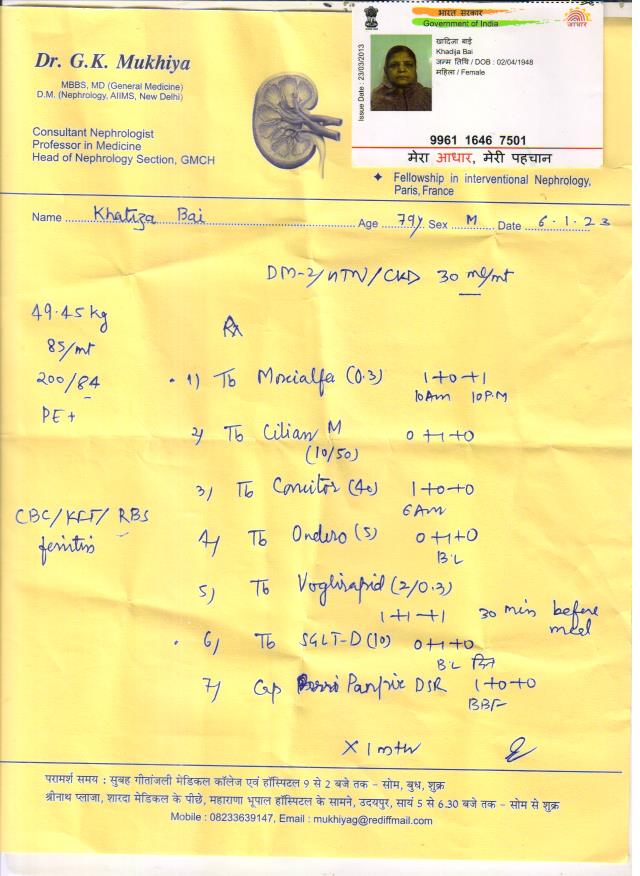 भारत सरकार
Government of India
आधार
Issue Date : 23/03/2013
खादिजा बाई
Khadija Bai
जन्म तिथि / DOB : 02/04/1948
महिला / Female
9961 1646 7501
मेरा आधार, मेरी पहचान
Dr. G.K. Mukhiya
MBBS, MD (General Medicine)
D.M. (Nephrology, AIIMS, New Delhi)
Consultant Nephrologist
Professor in Medicine
Head of Nephrology Section, GMCH
✦ Fellowship in interventional Nephrology,
Paris, France
Name Khatiza Bai Age 79y Sex M Date 6.1.23
DM-2/HTN/CKD 30 ml/mt
49.45 kg
85/mt
200/84
PE+
CBC/KFT/RBS
ferritin
Rx
1) Tb Moxialfa (0.3) 1+0+1
10 AM 10 P.M
2) Tb Cilian M 0+1+0
(10/50)
3) Tb (40) 1+0+0
6 AM
4) Tb Ondero (5) 0+1+0
B.L
5) Tb Voglirapid (2/0.3)
1+1+1 30 min before
meel
6) Tb SGLT-D (10) 0+1+0
B.L
7) Cap DSR 1+0+0
BBF
X 1 mth
परामर्श समय : सुबह गीतांजली मेडिकल कॉलेज एवं हॉस्पिटल 9 से 2 बजे तक – सोम, बुध, शुक्र
श्रीनाथ प्लाजा, शारदा मेडिकल के पीछे, महाराणा भूपाल हॉस्पिटल के सामने, उदयपुर, सायं 5 से 6.30 बजे तक – सोम से शुक्र
Mobile : 08233639147, Email : mukhiyag@rediffmail.com